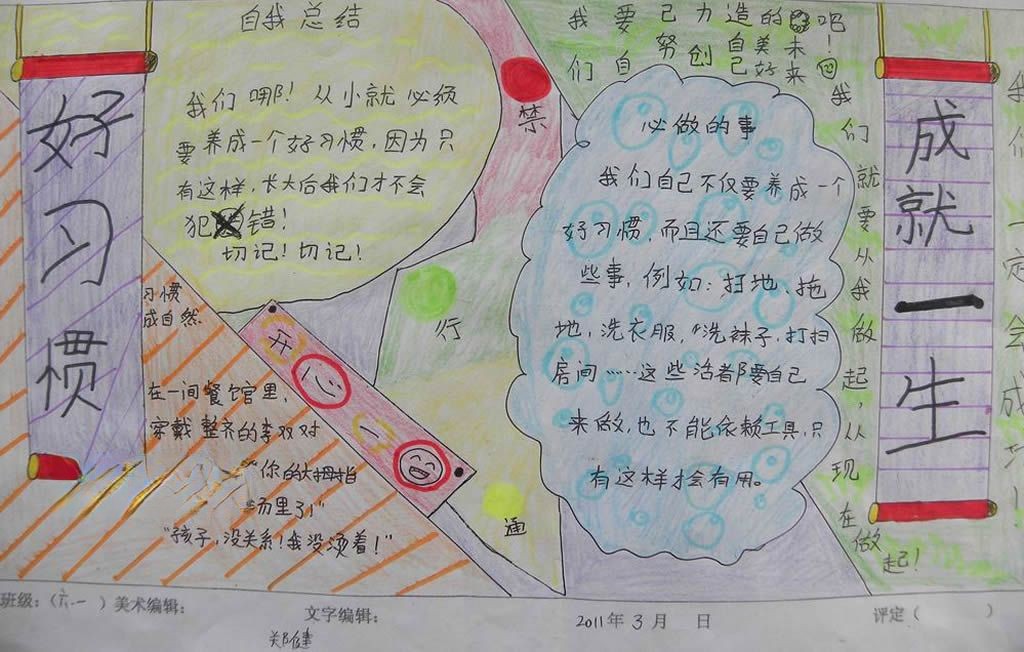 好习惯
自我总结
我们哪！从小就必须
要养成一个好习惯，因为只
有这样，长大后我们才不会
犯错！
切记！切记！
习惯
成自然
开心一
在一间餐馆里，
穿戴整齐的李双对
"你的大拇指
汤里了！"
"孩子，没关系！我没烫着！"
禁
行
通
必做的事
我们自己不仅要养成一个
好习惯，而且还要自己做
些事，例如：扫地、拖
地，洗衣服，洗袜子，打扫
房间……这些活者都要自己
来做，也不能依赖工具，只
有这样才会有用。
我们要自己努力创造自己的美好未来吧！
我们就要从我做起，从现在做起！
成就一生
班级：（六.一）美术编辑：
文字编辑：
郑健
2011年3月 日
评定（ ）